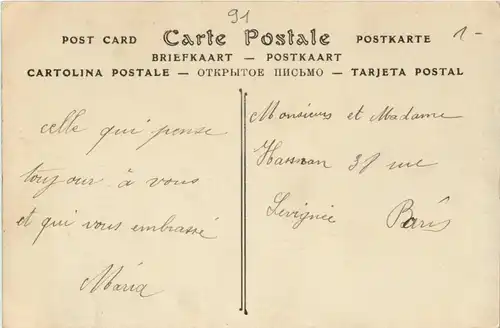 91
1-
POST CARD Carte Postale POSTKARTE
BRIEFKAART — POSTKAART
CARTOLINA POSTALE — ОТКРЫТОЕ ПИСЬМО — TARJETA POSTAL
celle qui pense
toujour à vous
et qui vous embrassé
Maria
Monsieur et Madame
Hassan 38 rue
Sevignée Paris